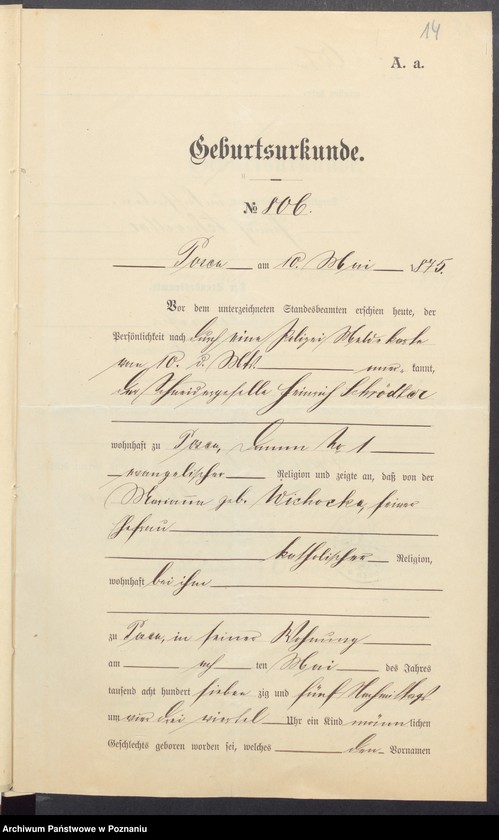 14
A. a.
Geburtsurkunde.
№ 806.
Posen am 10. Mai 1875.
Vor dem unterzeichneten Standesbeamten erschien heute, der
Persönlichkeit nach durch eine Polizei Melde Karte
vom 10. d. Mts. aner kannt,
der Schneidergeselle Heinrich Schrödter
wohnhaft zu Posen, Damm No 1
evangelischer Religion und zeigte an, daß von der
Marianna geb. Wichocka, seiner
Ehefrau
katholischer Religion,
wohnhaft bei ihm
zu Posen, in seiner Wohnung
am ten Mai des Jahres
tausend acht hundert sieben zig und fünf Nachmittags
um drei viertel Uhr ein Kind männ lichen
Geschlechts geboren worden sei, welches den Vornamen
Archiwum Państwowe w Poznaniu